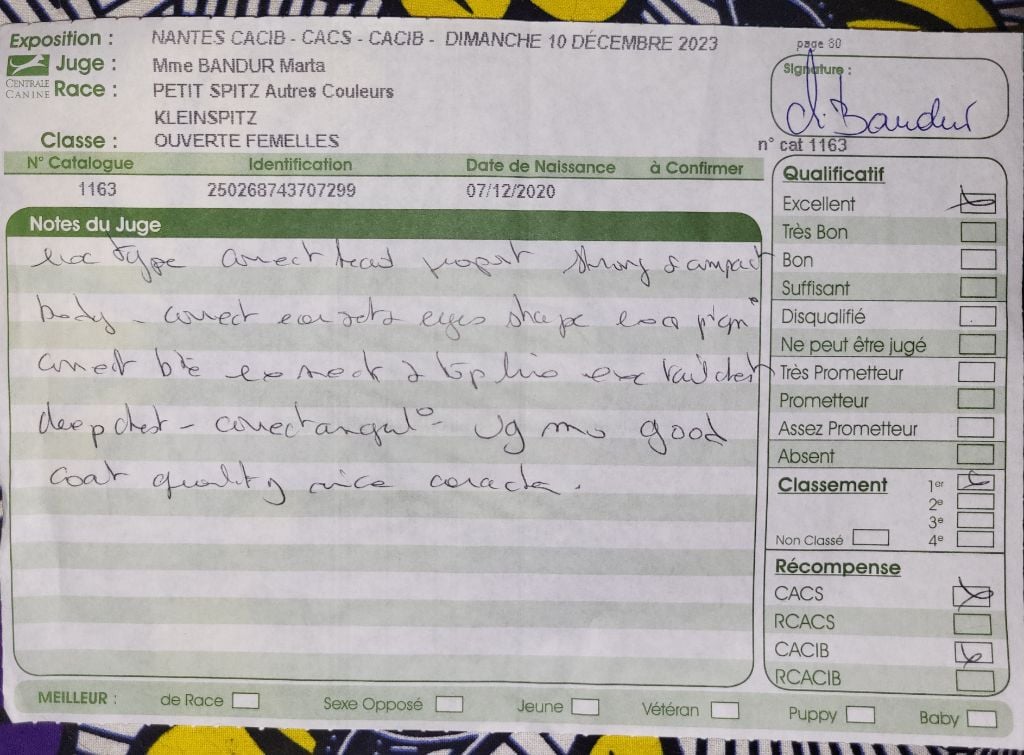 Exposition : NANTES CACIB - CACS - CACIB - DIMANCHE 10 DÉCEMBRE 2023
page 30
CENTRALE CANINE
Juge : Mme BANDUR Marta
Signature :
Race : PETIT SPITZ Autres Couleurs
KLEINSPITZ
Classe : OUVERTE FEMELLES
n° cat 1163
N° Catalogue Identification Date de Naissance à Confirmer
1163 250268743707299 07/12/2020
Notes du Juge
exc type correct head proport strong & compact
body - correct ear sets eyes shape exc pigm
correct bite exc neck & top line exc tail set
deep chest - correct angul° - good
coat quality nice
Qualificatif
Excellent
Très Bon
Bon
Suffisant
Disqualifié
Ne peut être jugé
Très Prometteur
Prometteur
Assez Prometteur
Absent
Classement 1er
2e
3e
Non Classé 4e
Récompense
CACS
RCACS
CACIB
RCACIB
MEILLEUR : de Race Sexe Opposé Jeune Vétéran Puppy Baby